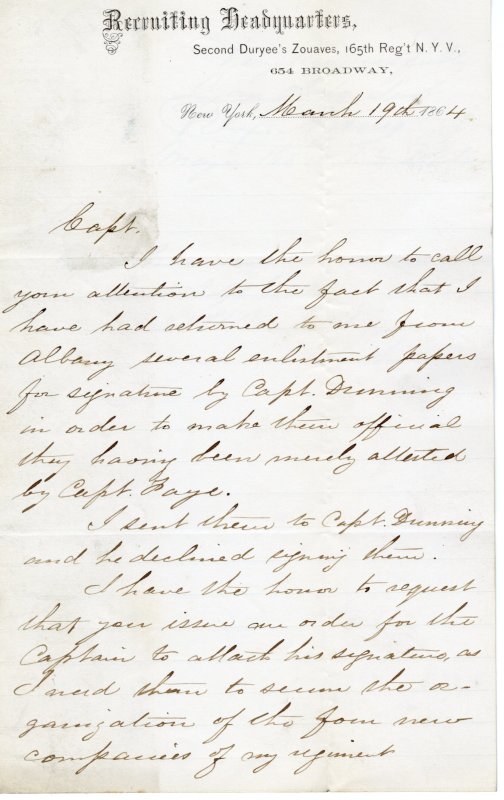 Recruiting Headquarters,
Second Duryee's Zouaves, 165th Reg't N. Y. V.,
654 BROADWAY,
New York, March 19th 1864.
Capt.
I have the honor to call
your attention to the fact that I
have had returned to me from
Albany several enlistment papers
for signature by Capt. Dunning
in order to make them official
they having been merely attested
by Capt. Faye.
I sent them to Capt. Dunning
and he declined signing them.
I have the honor to request
that you issue an order for the
Captain to attach his signature, as
I need them to secure the or-
ganization of the four new
companies of my regiment